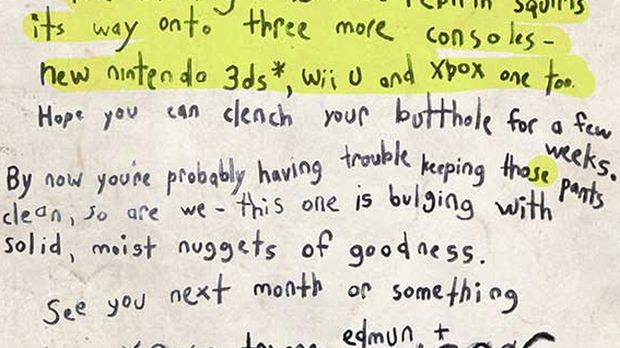 squirts
its way onto three more consoles -
new nintendo 3ds*, wii U and Xbox one too.
Hope you can clench your butthole for a few
weeks.
By now you're probably having trouble keeping those pants
clean, so are we - this one is bulging with
solid, moist nuggets of goodness.
See you next month or something
edmun +